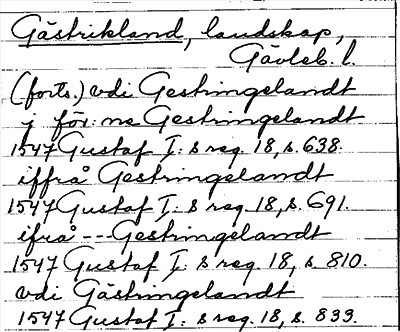 Gästrikland, landskap,
Gävleb. l.
(forts.) vdi Gestringelandt
j för: ne Gestringelandt
1547 Gustaf I: s reg. 18, s. 638.
iffrå Gestringelandt
1547 Gustaf I: s reg. 18, s. 691.
ifrå --- Gestringelandt
1547 Gustaf I: s reg. 18, s. 810.
vdi Gästringelandt
1547 Gustaf I: s reg. 18, s. 833.